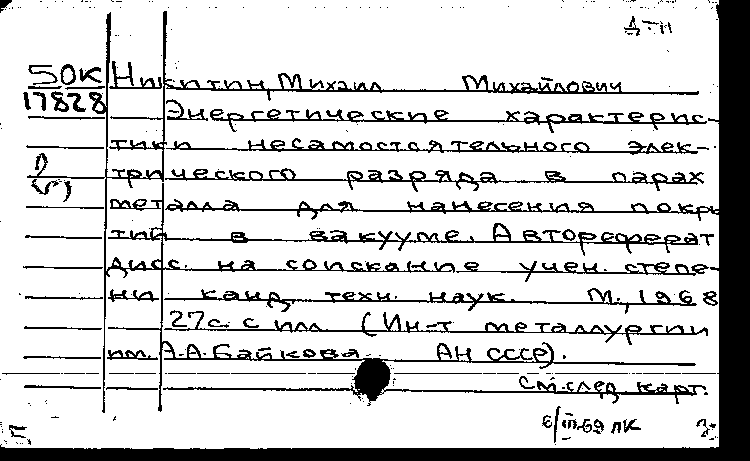 Д-11
50К Никитин, Михаил Михайлович
17828 Энергетические характерис-
тики несамостоятельного элек-
трического разряда в парах
металла для нанесения покры
тий в вакууме. Автореферат
дисс. на соискание учен. степе-
ни канд. техн. наук. М., 1968
27с. с илл. (Ин-т металлургии
им. А.А. Байкова АН СССР).
См. след. карт.
6/III-69 ЛК